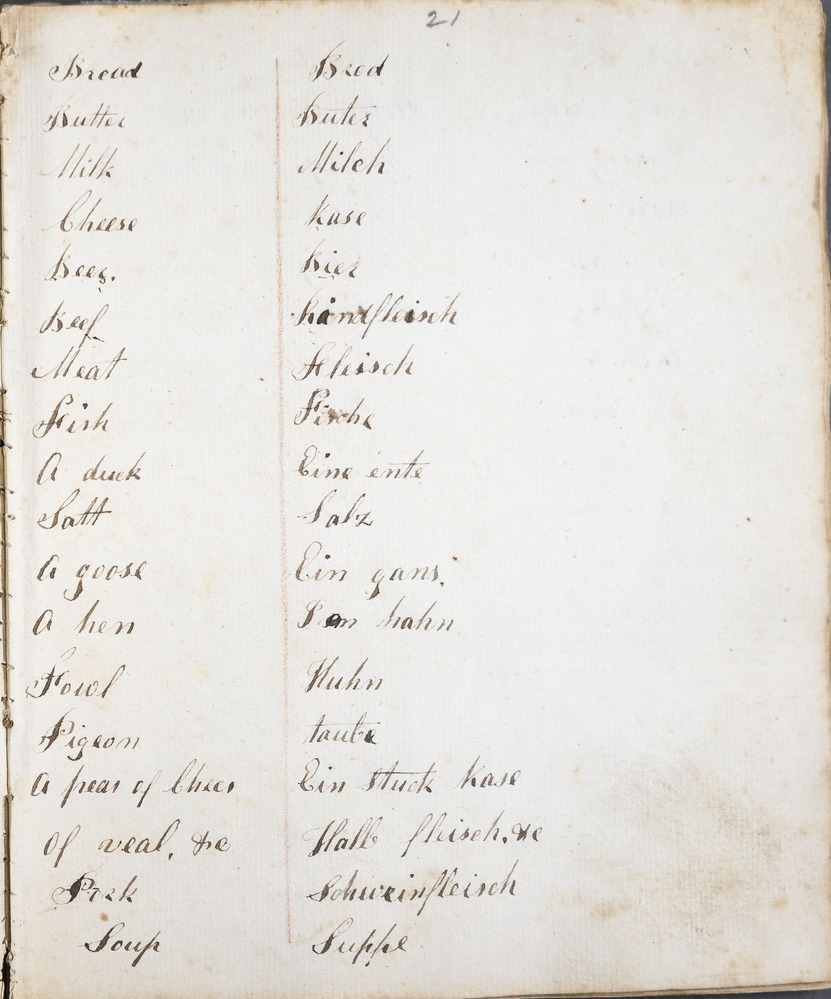 21
Bread Brod
Butter Buter
Milk Milch
Cheese Kase
Beer. Bier
Beef
Meat Fleisch
Fish Fische
A duck Eine ente
Salt Salz
A goose Ein gans.
A hen hahn
Fowl Huhn
Pigeon taube
A peas of Chees Ein Stuck Kase
Of veal, &c Halb fleisch, &c
Pork Schweinfleisch
Soup Suppe